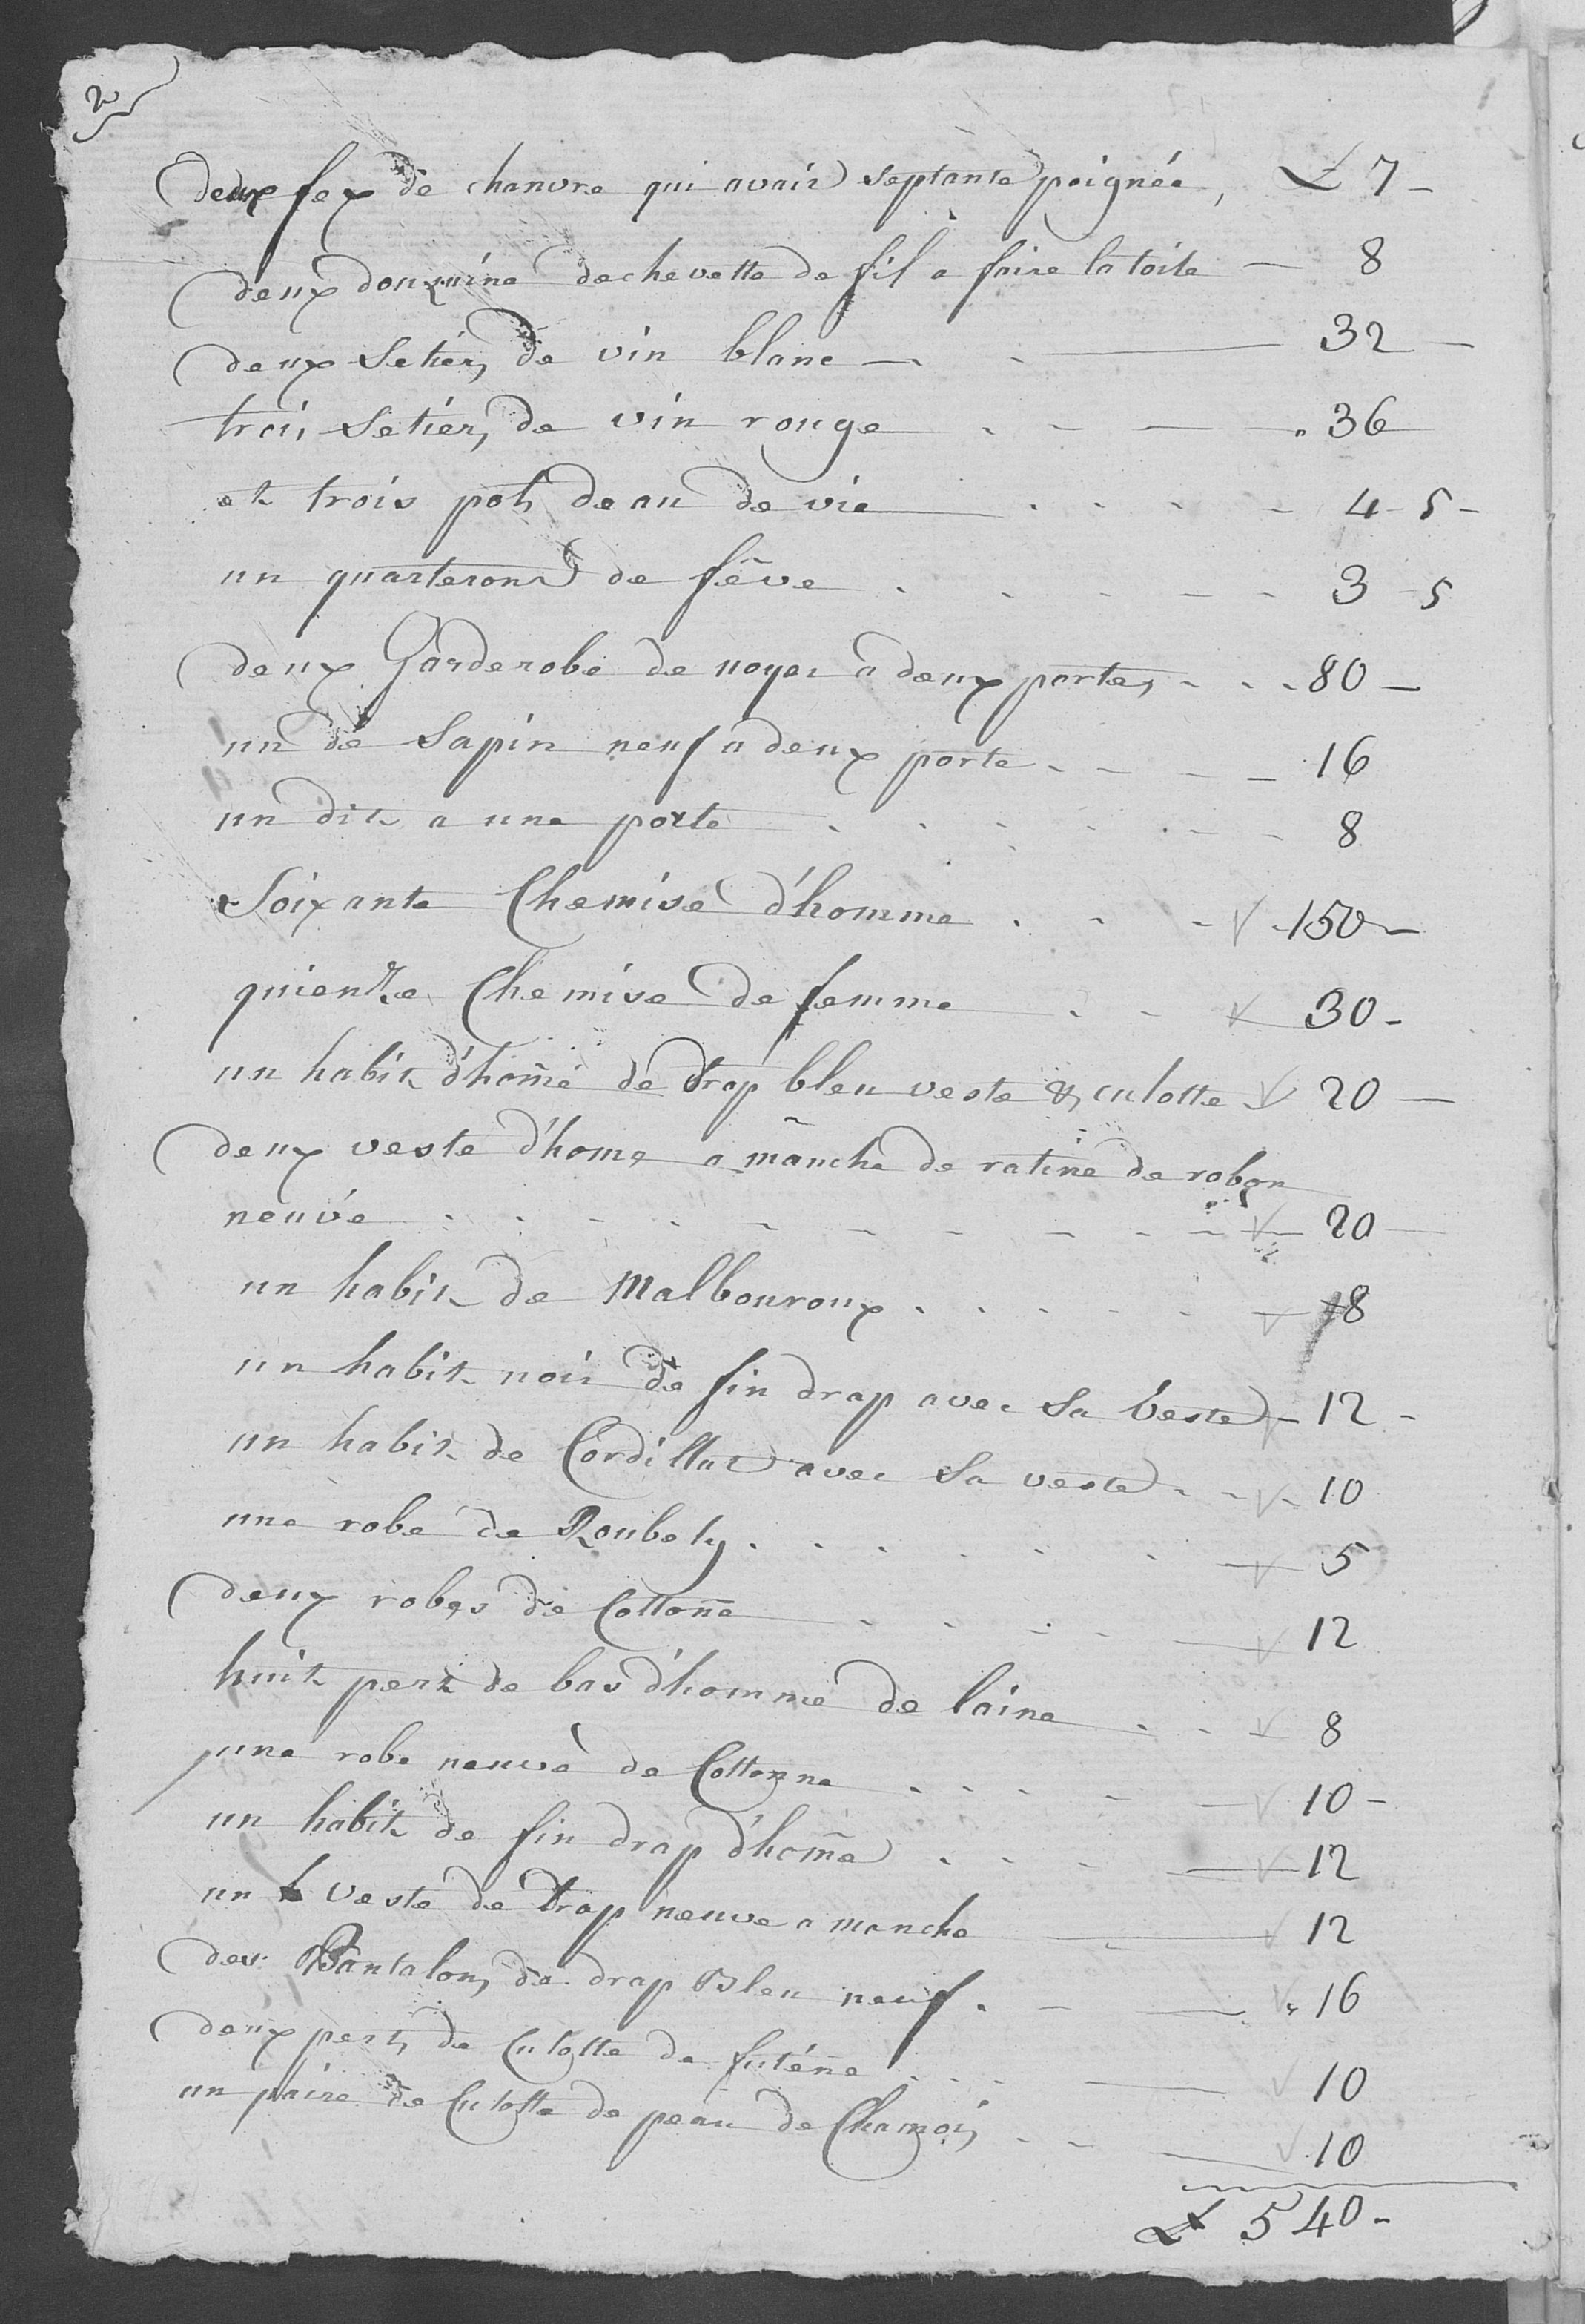 2
deux fex de chanvre qui avait septante poignée, L 7 -
deux douzaine dechevette de fil a faire la toile - 8
deux Setiers de vin blanc - 32 -
trois Setiers de vin rouge - 36
et trois pots deau de vie - 4 - 5 -
un quarterons de fêve - 3 - 5
deux Garderobe de noyer a deux portes - 80 -
un de Sapin neuf a deux porte - 16
un dit a une porte - 8
Soixante Chemise d'homme - 150 -
quienze Chemise de femme - 30 -
un habit d'hom̃e de Drap bleu veste & culotte 20 -
deux veste d'home a manche de ratine de robon
neuve - 20
un habit de Malbouroux - 18
un habit noir de fin drap avec Sa Veste - 12 -
un habit de Cordillat avec Sa veste - 10
une robe de Roubety - 5
deux robes de Cottoñe - 12
huit pert de bas d'homme de laine - 8
une robe neuve de Cottonne - 10 -
un habit de fin drap d'hom̃e - 12
un veste de Drap neuve a manche - 12
des Pantalons de drap Bleu neuf - 16
deux pert de Culotte de futéñe - 10
un paire de Culotte de peau de Chamois - 10
L 540 -